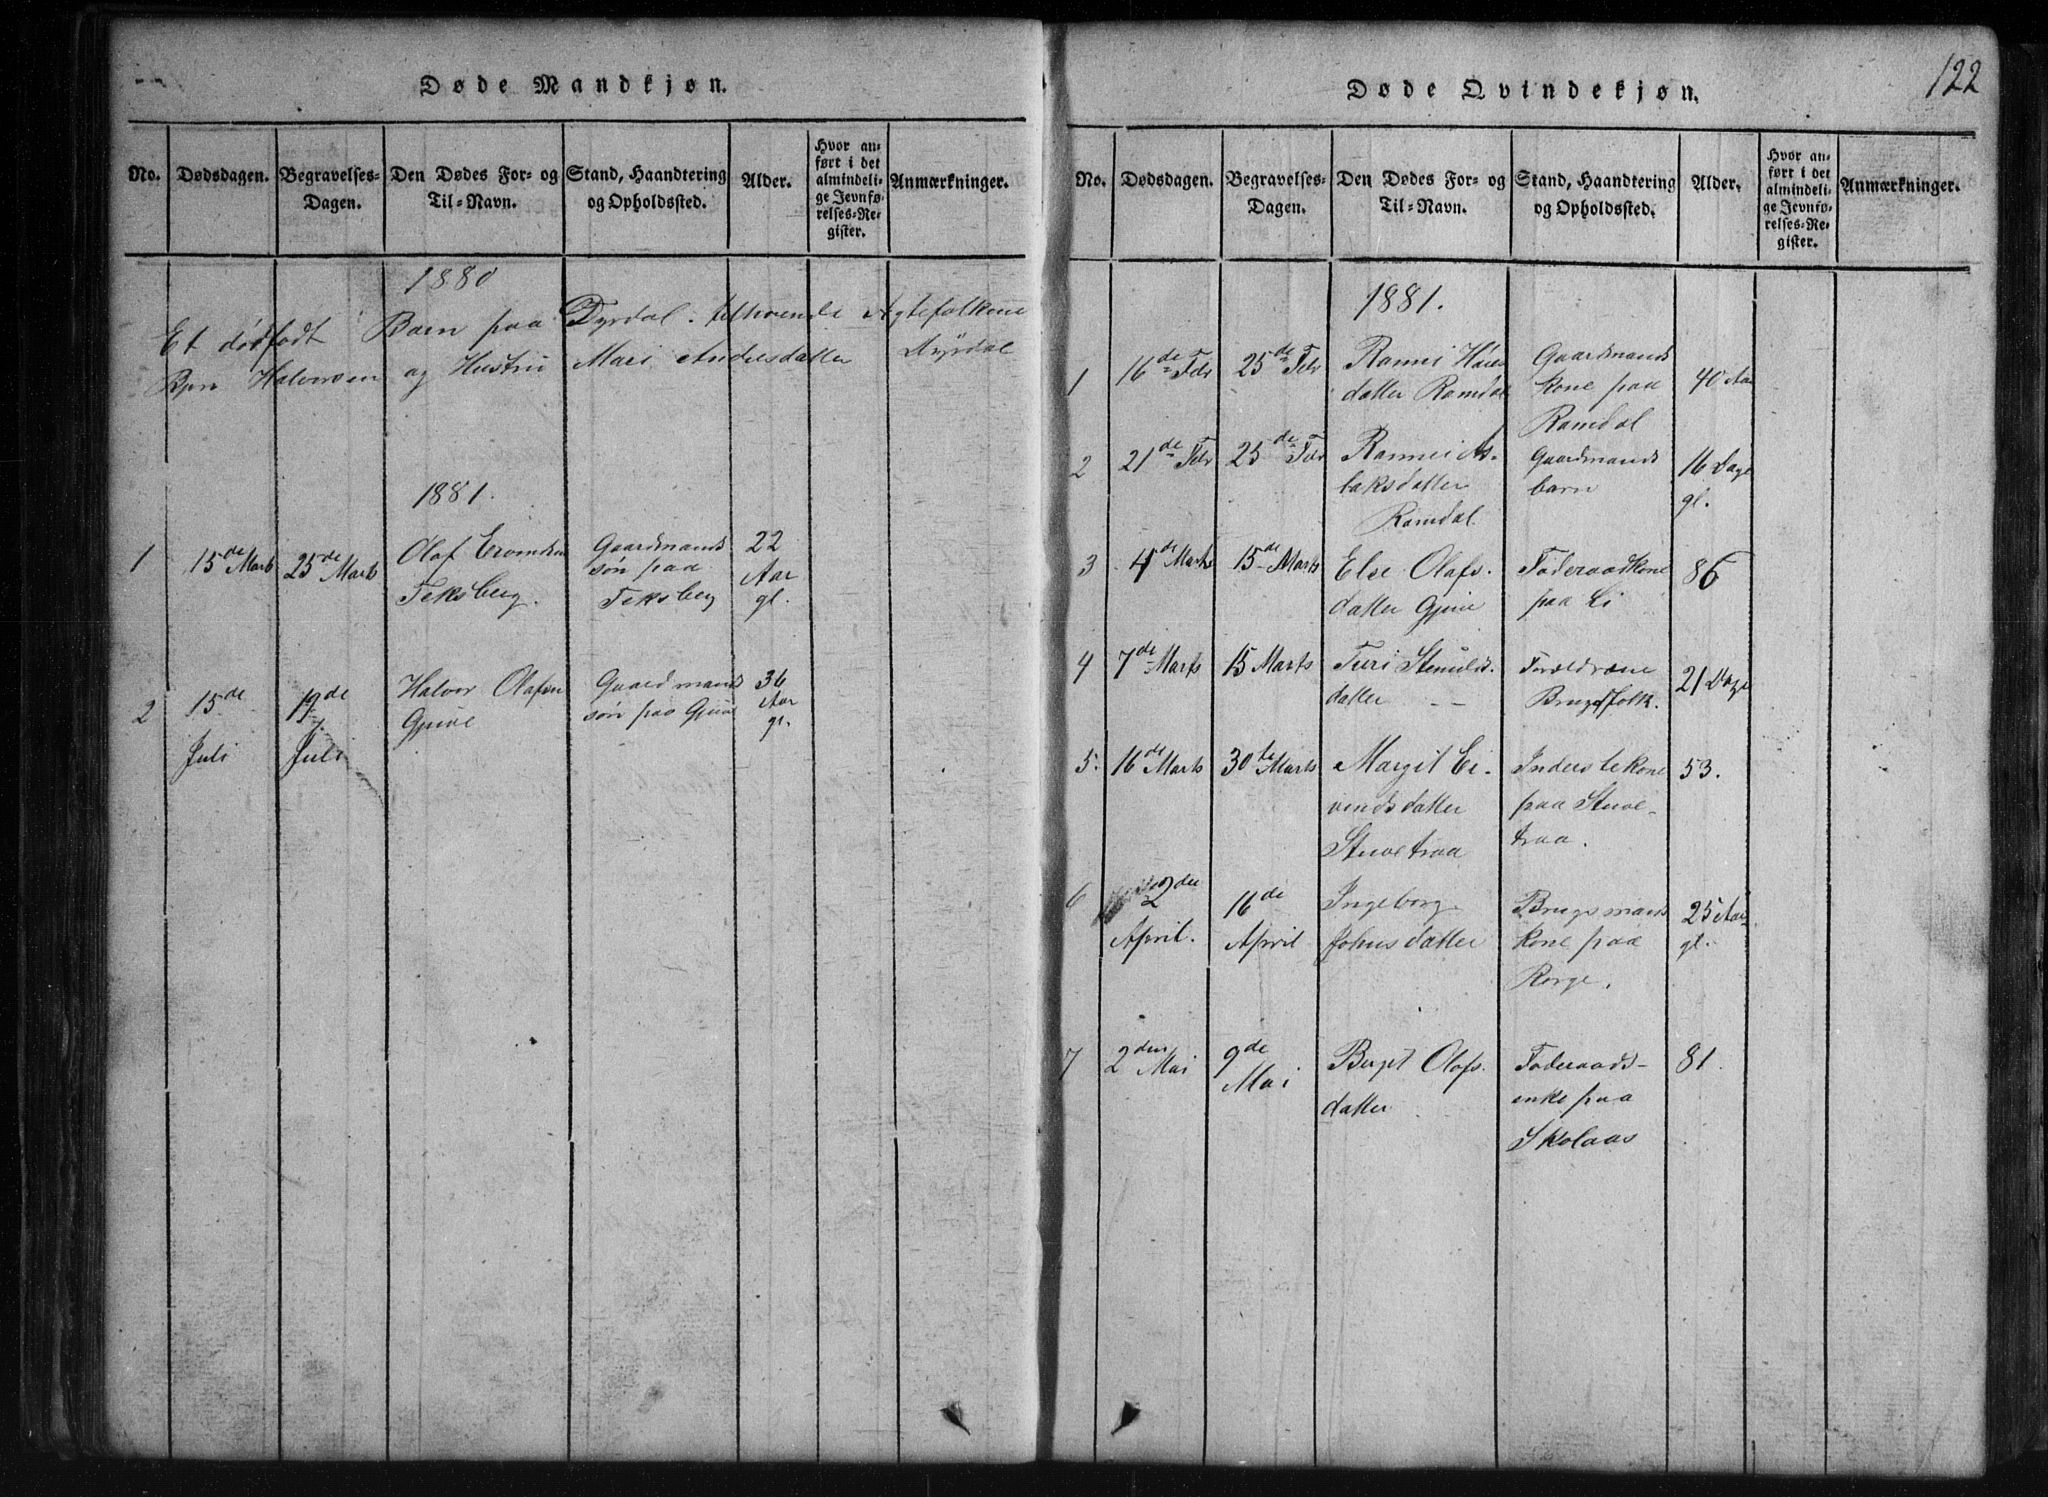 Døde Mandkjøn.
No.
Dødsdagen.
Begravelses-
Dagen.
Den Dødes For- og
Til-Navn.
Stand, Haandtering
og Opholdssted.
Alder.
Hvor an-
ført i det
almindeli-
ge Jevnfø-
relses-Re-
gister.
Anmærkninger.
1880
Et dødfødt Barn paa Tyrdal tilhørende Ægtefolkene
Halvorsen og Hustru Mari Andersdatter
1881.
1
15de Marts
25de Marts
Olaf
Feksberg.
Gaardmands
søn paa
Feksberg
22
Aar
gl.
2
15de
Juli
19de
Juli
Halvor Olafsen
Gjuve
Gaardmands
søn paa Gjuve
36
Aar
gl.
122
Døde Qvindekjøn.
No.
Dødsdagen.
Begravelses-
Dagen.
Den Dødes For- og
Til-Navn.
Stand, Haandtering
og Opholdssted.
Alder.
Hvor an-
ført i det
almindeli-
ge Jevnfø-
relses-Re-
gister.
Anmærkninger.
1881.
1
16de Febr
25de Febr
Rannei
datter Ramdal
Gaardmands
kone paa
Ramdal
40 Aar
2
21de Febr
25de Febr
Rannei As-
laksdatter
Ramdal
Gaardmands
barn
16 Dage
gl.
3
4de Marts
15de Marts
Else Olafs-
datter Gjuve
Føderaadkone
paa Li
86
4
7de Marts
15 Marts
Turi
datter
Forældrene
Brugsfolk.
21 Dage
5.
16de Marts
30te Marts
Margit Ei-
vendsdatter
Stuvetraa
Inderstekone
paa Stuve-
traa.
53.
6
2den
April.
16de
April
Ingeborg
Johnsdatter
Brugsmands
kone paa
Rorge.
25 Aar
gl.
7
2den
Mai
9de
Mai
Berget Olafs-
datter
Føderaads-
enke paa
Skolaas
81